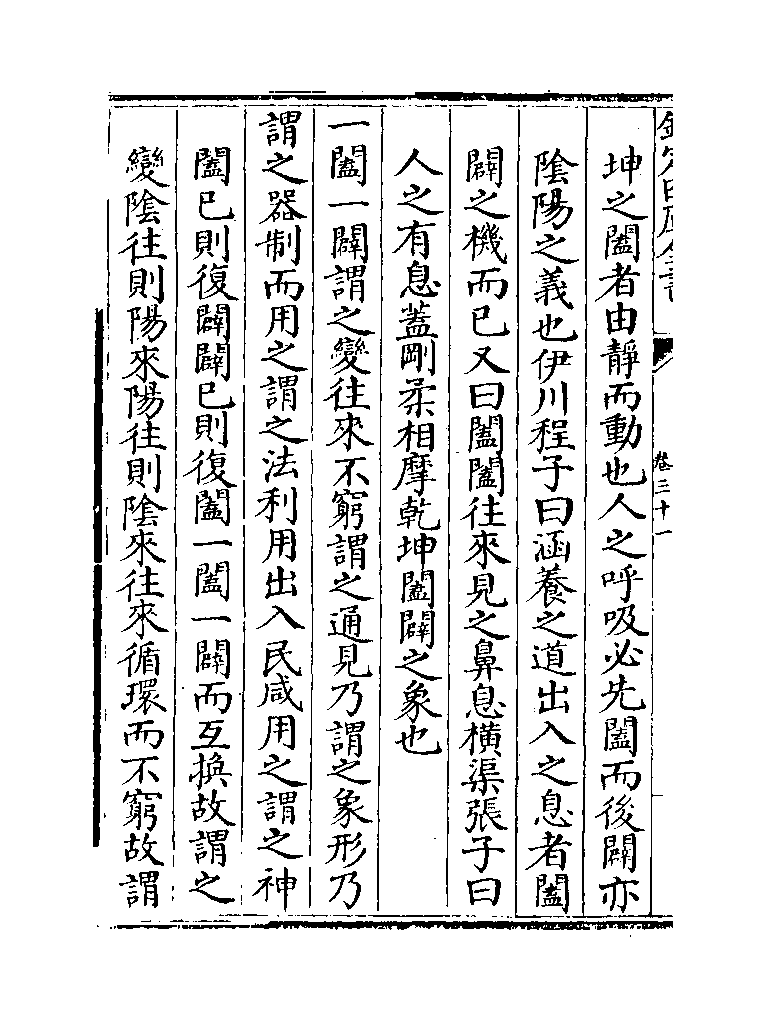 卷三十一
坤之闔者由靜而動也人之呼吸必先闔而後闢亦
陰陽之義也伊川程子曰涵養之道出入之息者闔
闢之機而已又曰闔闔往來見之鼻息橫渠張子曰
人之有息蓋剛柔相摩乾坤闔闢之象也
一闔一闢謂之變往來不窮謂之通見乃謂之象形乃
謂之器制而用之謂之法利用出入民咸用之謂之神
闔已則復闢闢已則復闔一闔一闢而互換故謂之
變陰往則陽來陽往則陰來往來循環而不窮故謂